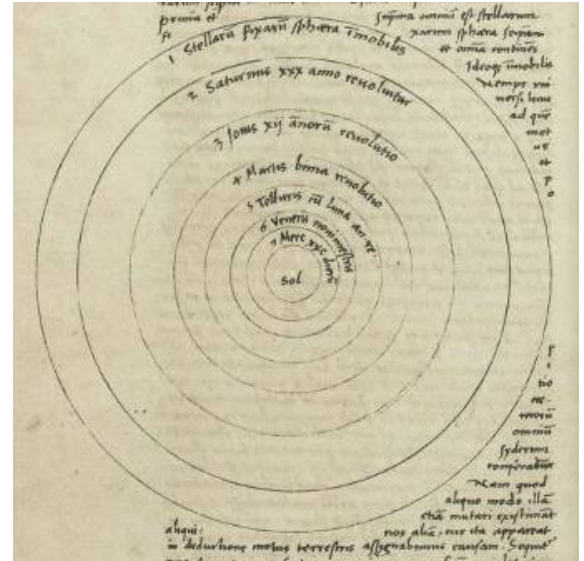 prima et sequina omnium est stellarum
fi xarum sphæra seipsam
et omnia continens
Ideoqꝫ īmobilis
Nempe uni
uersi locus
ad quē
mot
us
et
p
o
1 Stellarū fixarū sphæra īmobilis
2 Saturnus xxx anno reuoluitur
3 Iouis xij annorū reuolutio
4 Martis bima reuolutio
5 Telluris cū luna an. re.
6 Veneris nonimestris
7 Merc xxc dierū
Sol
s
i
tio
cæ-
terorū
omniū
syderum
conferatur
Nam quod
aliquo modo illā
etiā mutari existimāt
aliqui: nos aliā, cur ita appareat
in deductione motus terrestris assignabimus causam. Sequit̄